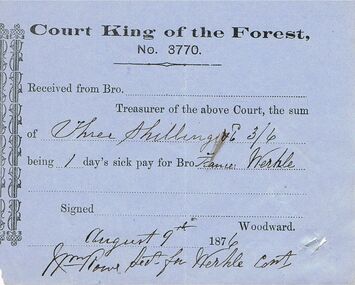 Court King of the Forest,
No. 3770.
Received from Bro.
Treasurer of the above Court, the sum
of Three Shillings 3/6
being 1 day's sick pay for Bro. Werkle
Signed
Woodward.
August 9th 1876
Wm Rowe for Werkle